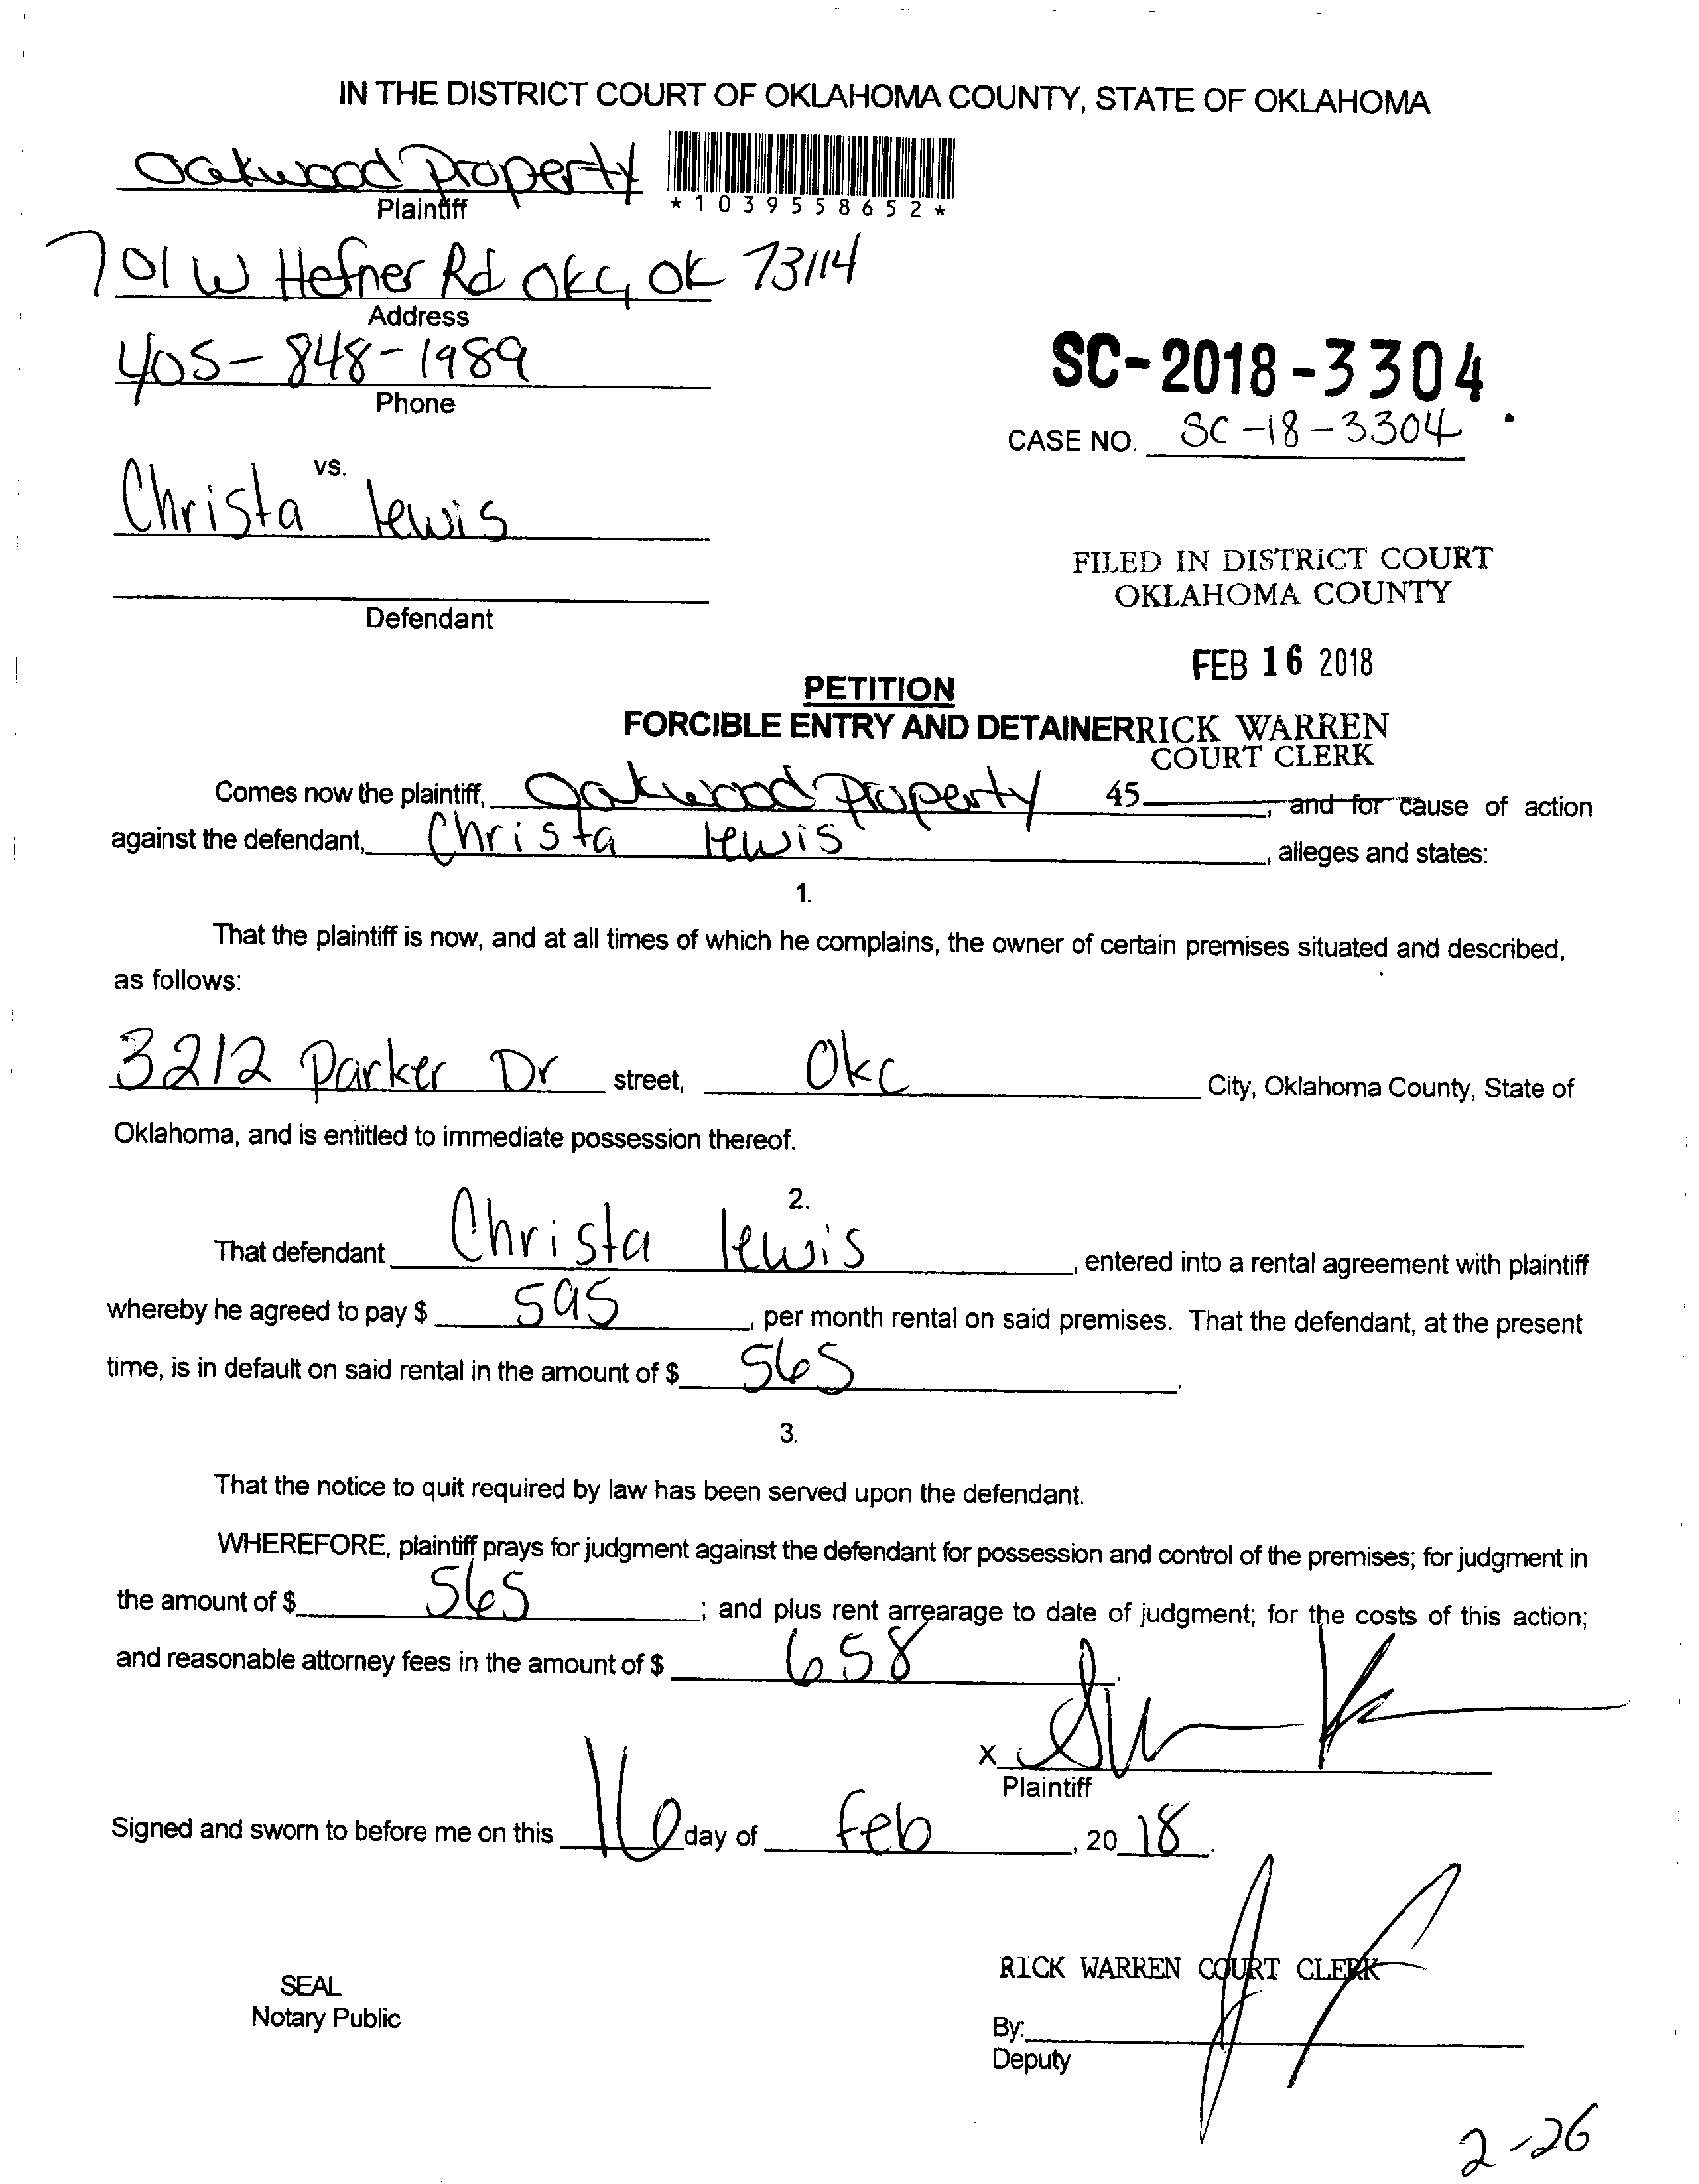 IN THE DISTRICT COURT OF OKLAHOMA COUNTY, STATE OF OKLAHOMA
Oakwood Property
Plaintiff
*1039558652*
701 W Hefner Rd OKC, OK 73114
Address
405-848-1989
Phone
SC-2018-3304
CASE NO. SC-18-3304
vs.
Christa Lewis
Defendant
FILED IN DISTRICT COURT
OKLAHOMA COUNTY
FEB 16 2018
PETITION
FORCIBLE ENTRY AND DETAINER
RICK WARREN
COURT CLERK
Comes now the plaintiff, Oakwood Property 45 , and for cause of action
against the defendant, Christa Lewis , alleges and states:
1.
That the plaintiff is now, and at all times of which he complains, the owner of certain premises situated and described,
as follows:
3212 Parker Dr street, OKC City, Oklahoma County, State of
Oklahoma, and is entitled to immediate possession thereof.
2.
That defendant Christa Lewis , entered into a rental agreement with plaintiff
whereby he agreed to pay $ 595 , per month rental on said premises. That the defendant, at the present
time, is in default on said rental in the amount of $ 565 .
3.
That the notice to quit required by law has been served upon the defendant.
WHEREFORE, plaintiff prays for judgment against the defendant for possession and control of the premises; for judgment in
the amount of $ 565 ; and plus rent arrearage to date of judgment; for the costs of this action;
and reasonable attorney fees in the amount of $ 658 .
X
Plaintiff
Signed and sworn to before me on this 16 day of Feb , 20 18 .
RICK WARREN COURT CLERK
SEAL
Notary Public
By:
Deputy
2-26